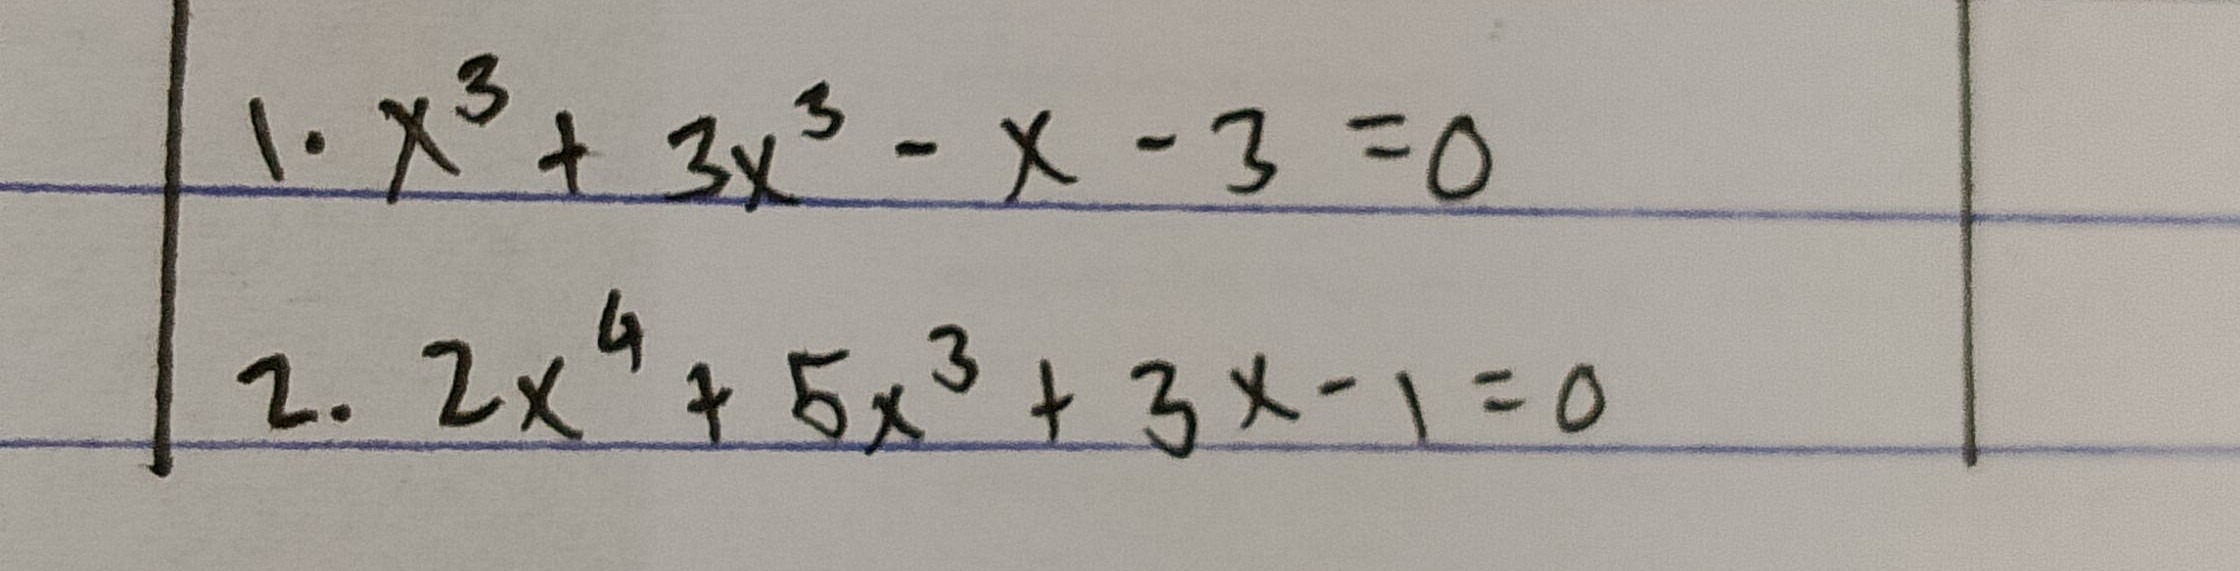 1. x³ + 3x³ - x - 3 = 0
2. 2x⁴ + 5x³ + 3x - 1 = 0